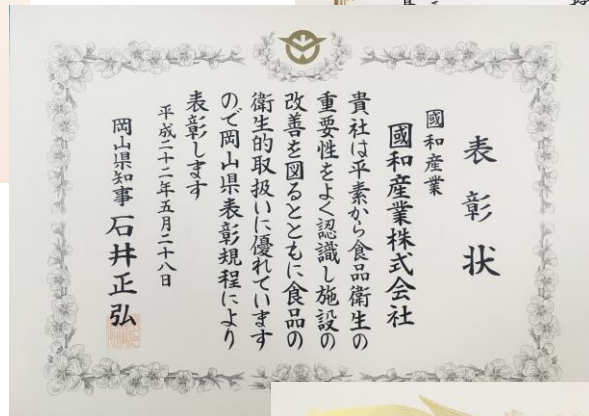 表彰状
國和産業
國和産業株式会社
貴社は平素から食品衛生の
重要性をよく認識し施設の
改善を図るとともに食品の
衛生的取扱いに優れています
ので岡山県表彰規程により
表彰します
平成二十二年五月二十八日
岡山県知事 石井正弘